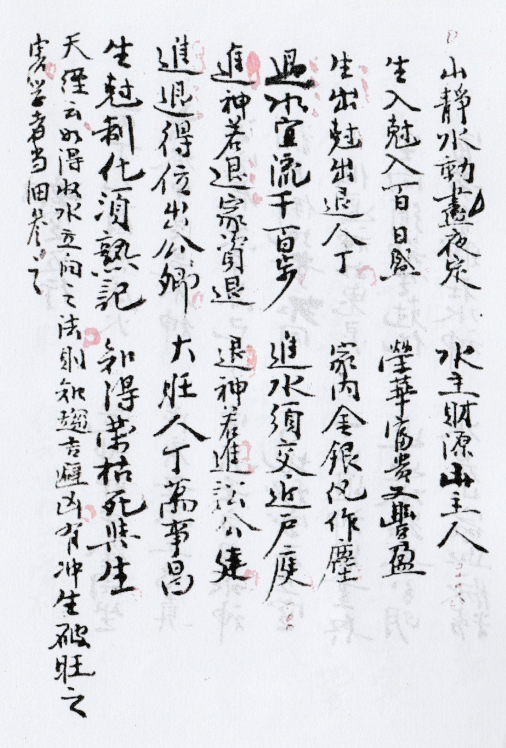 山靜水動晝夜定　水主財源山主人
生入尅入百日盈　榮華富貴又豐盈
生出尅出退人丁　家內金銀化作塵
退水宜流千百步　進水須交近戶庭
進神若退家資退　退神若進訟公庭
進退得位出公卿　大旺人丁萬事昌
生尅制化須熟記　知得榮枯死與生
天經云如得收水立向之法則知趨吉避凶有冲生破旺之
害学者当细參之